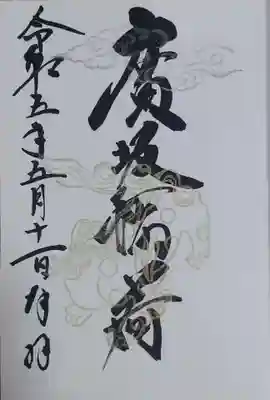 廣坂稲荷
令和五年五月十一日拜羽